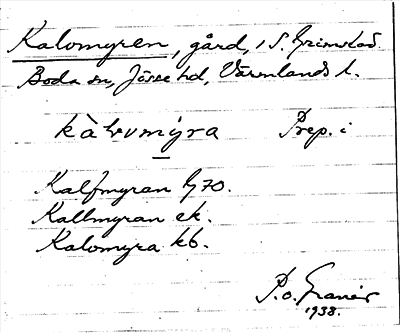 Kalomyren, gård, i S. Grimstad.
Boda sn, Jösse hd, Värmlands l.
kàlvmýra Prep. i
Kalfmyran G70.
Kallmyran ek.
Kalomyra kb.
P.O. Granér
1938.